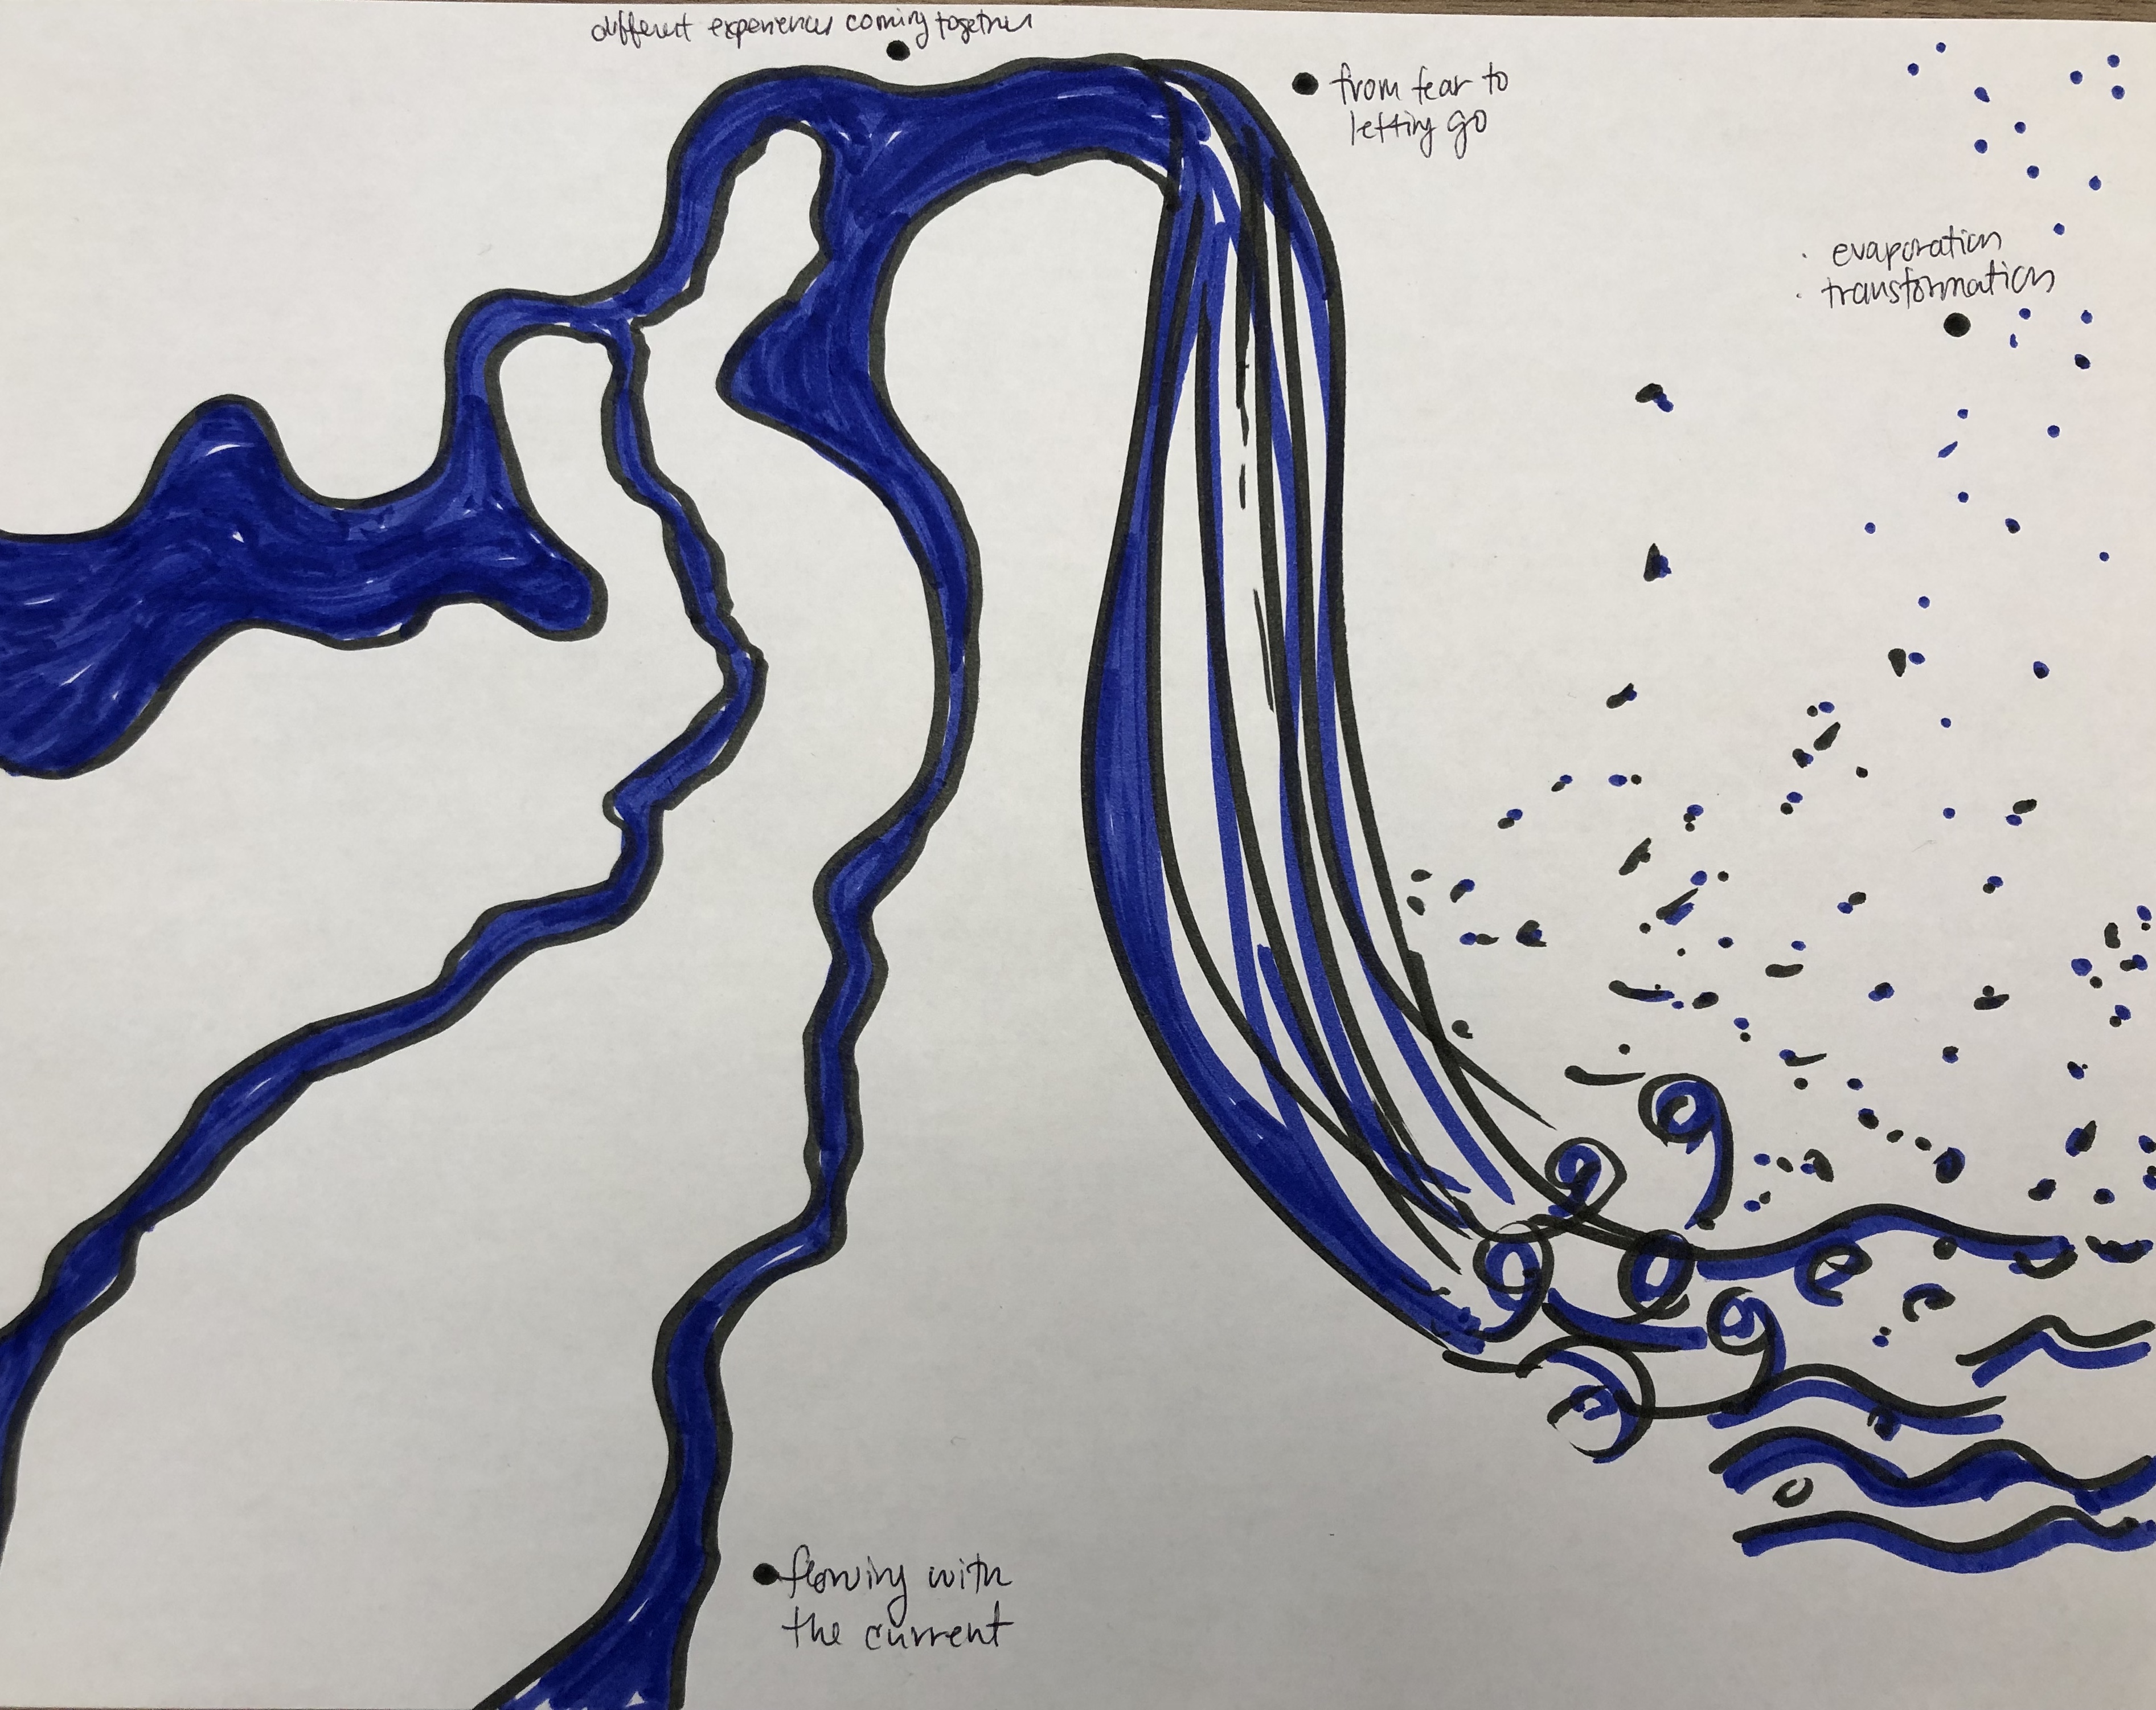 different experiences coming together
from fear to
letting go
evaporation
transformation
flowing with
the current